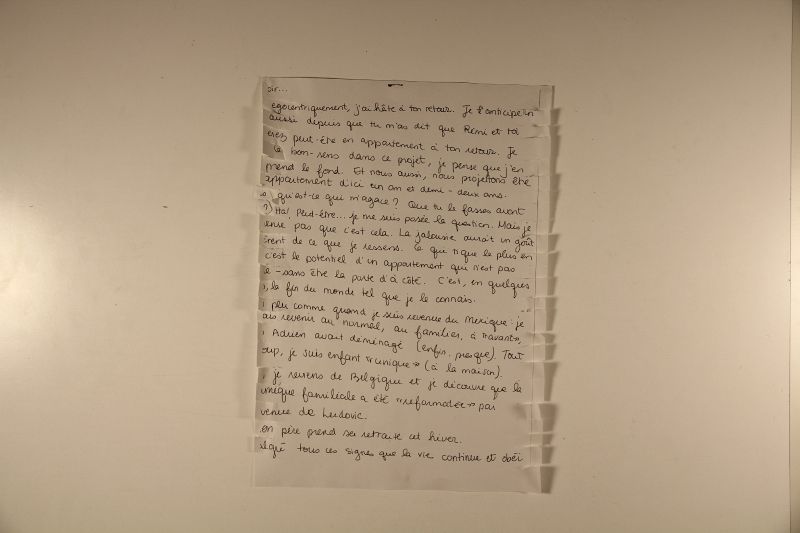 oir...
egocentriquement, j'ai hâte à ton retour. Je l'anticipe
aussi depuis que tu m'as dit que Rémi et toi
peut-être en appartement à ton retour. Je
le bon-sens dans ce projet, je pense que j'en
prend le fond. Et nous aussi, nous projetons être
appartement d'ici un an et demi - deux ans.
qu'est-ce qui m'agace? Que tu le fasses avant
?) Ha! Peut-être... je me suis posée la question. Mais je
pas que c'est cela. La jalousie aurait un goût
de ce que je ressens. Ce qui tique le plus en
c'est le potentiel d'un appartement qui n'est pas
- sans être la porte d'à côté. C'est, en quelques
, la fin du monde tel que je le connais.
peu comme quand je suis revenue du Mexique: je
ais revenir au normal, au familier, à «l'avant»,
Adrien avait déménagé (enfin, presque). Tout
oup, je suis enfant «unique» (à la maison).
, je reviens de Belgique et je découvre que la
familiale a été «reformatée» par
venue de Ludovic.
on père prend sa retraite cet hiver.
gré tous ces signes que la vie continue et